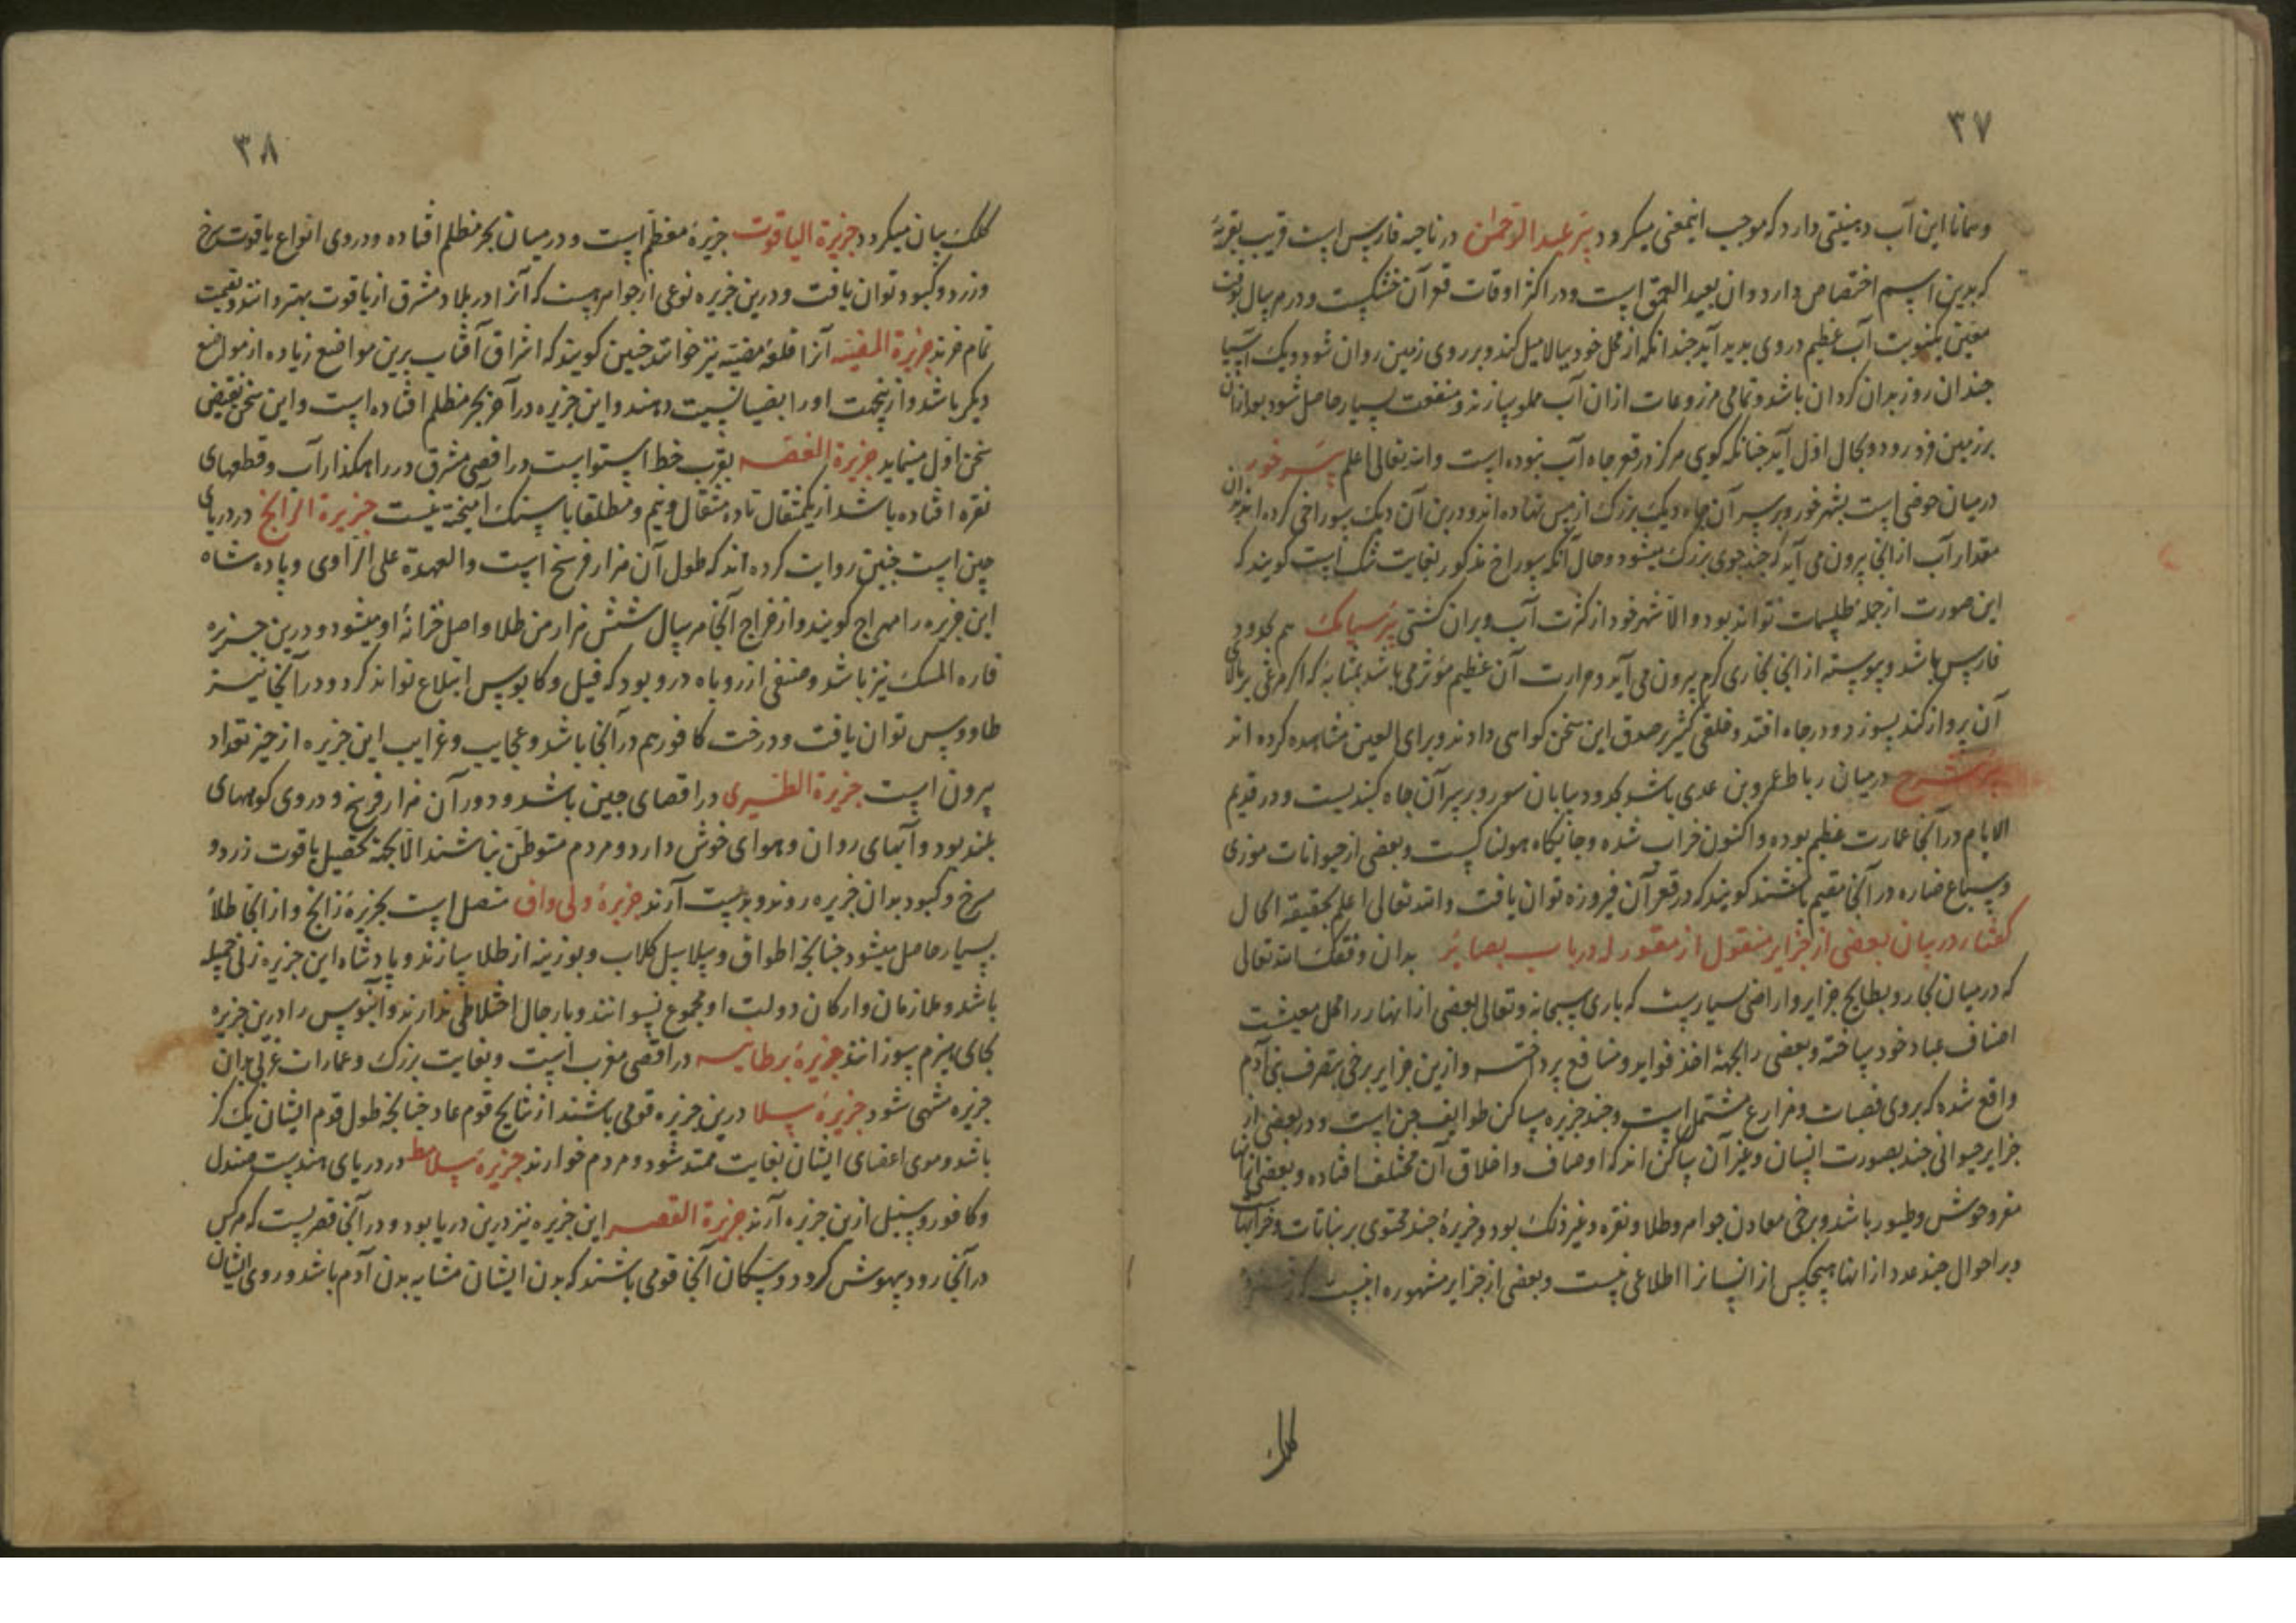 ٣٧
وهمانا این آب دهنیتی دارد که موجب اینمعنی میکرود بئر عبد الرحمن در ناحیه فارس است قریب بقریهٔ
که بدین اسم اختصاص دارد وان بعید العمق است ودر اکثر اوقات قعر آن خشکست ودر هر سال بوقت
معین یکنوبت آب عظیم در وی بدید آید جندانکه از محل خود ببالا میل کند وبر روی زمین روان شود ویک آسیا
جندان روز بدان کردان باشد وتمامی مزروعات ازان آب مملو سازند ومنفعت بسیار حاصل شود بعد ازان
بر زمین فرو رود وبحال اول آید جنانکه کوی هرکز در قعر جاه آب نبوده است والله تعالی اعلم بئر خور
در میان حوضی است بشهر خور وبر سر آن جاه دیک بزرک از مس نهاده اند ودر بن آن دیک سوراخی کرده اند وازان
مقدار آب از انجا بیرون می آید که جند جوی بزرک میشود وحال آنکه سوراخ مذکور بغایت تنک است کویند که
این صورت از جمله طلسمات تواند بود والا شهر خود از کثرت آب ویران کشتی بئر سیامک هم بحدود
فارس باشد وپیوسته از انجا بخاری کرم بیرون می آید وحرارت آن عظیم مؤثر می باشد بمثابهٔ که اکر مرغی بر بالای
آن پرواز کند بسوزد ودر جاه افتد وخلقی کثیر بر صدق این سخن کواهی دادند وبرای العین مشاهده کرده اند
بئر شرح در میان رباط عمرو بن عدی باشد بحدود بیابان سور وبر سر آن جاه کنبدیست ودر قدیم
الایام در آنجا عمارت عظیم بوده واکنون خراب شده وجایکاه هولناکیست وبعضی از حیوانات موذی
وسباع ضاره در آنجا مقیم باشند کویند که در قعر آن فیروزه توان یافت والله تعالی اعلم بحقیقة الحال
کفتار در بیان بعضی از جزایر منقول از مقتور له در باب بصایر بدان وفقک الله تعالی
که در میان بحار وبطایح جزایر واراضی بسیارست که باری سبحانه وتعالی بعضی از انها را محل معیشت
اصناف عباد خود ساخته وبعضی را بجهة اخذ فواید ومنافع پرداخته وازین جزایر برخی بتصرف بنی آدم
واقع شده که بر وی قصبات ومزارع مشتمل است وجند جزیره مساکن طوایف جن است ودر بعضی از
جزایر حیوانی جند بصورت انسان وغیر آن ساکن اند که اوصاف واخلاق آن مختلف افتاده وبعضی ازانها
مقر وحوش وطیور باشد وبرخی معادن جواهر وطلا ونقره وغیر ذلک بود وجزیرهٔ جند محتوی بر نباتات وخرابهاست
وبر احوال جند عدد ازانها هیچکس از انسان را اطلاعی نیست وبعضی از جزایر مشهوره اینست که
کلک
٣٨
کلک بیان میکرود جزیرة الیاقوت جزیرهٔ معظم است ودر میان بحر مظلم افتاده ودر وی انواع یاقوت سرخ
وزرد وکبود توان یافت ودرین جزیره نوعی از جواهرست که آنرا در بلاد مشرق از یاقوت بهتر دانند وبقیمت
تمام خرند جزیرة المضیئه آنرا قلعهٔ مضیئه نیز خوانند جنین کویند که اشراق آفتاب برین مواضع زیاده از مواضع
دیکر باشد وازینجهت اورا بضیا نسبت دهند واین جزیره در آخر بحر مظلم افتاده است واین سخن نقیض
سخن اول مینماید جزیرة الفضه بقرب خط استواست در اقصی مشرق در راهکذار آب وقطعهای
نقره افتاده باشد از یکمثقال تا ده مثقال ونیم ومطلقا با سنک آمیخته نیست جزیرة الزابج در دریای
جین است جنین روایت کرده اند که طول آن هزار فرسخ است والعهدة علی الراوی وپادشاه
این جزیره را مهراج کویند واز خراج آنجا هر سال شش هزار من طلا واصل خزانهٔ او میشود ودرین جزیره
فاره المسک نیز باشد وصنفی از روباه در و بود که فیل وکابوس ابتلاع تواند کرد ودر آنجا نیز
طاووس توان یافت ودرخت کافور هم در آنجا باشد وعجایب وغرایب این جزیره از حیز تعداد
بیرون است جزیرة الطیری در اقصای جین باشد ودور آن هزار فرسخ ودر وی کوههای
بلند بود وآبهای روان وهوای خوش دارد ومردم متوطن نباشند الا بجهة تحصیل یاقوت زرد و
سرخ وکبود بدان جزیره روند وبدست آرند جزیرهٔ ولی واق متصل است بجزیرهٔ زابج واز انجا طلاء
بسیار حاصل میشود جنانجه اطواق وسلاسل کلاب وبوزینه از طلا سازند وپادشاه این جزیره زنی جمیله
باشد وملازمان وارکان دولت او مجموع نسوانند وبا رجال اختلاطی ندارند وآبنوس را درین جزیره
بجای هیزم سوزانند جزیرهٔ برطانیه در اقصی مغرب است وبغایت بزرک وعمارات غربی بدان
جزیره منتهی شود جزیرهٔ سلا درین جزیره قومی باشند از نتایج قوم عاد جنانجه طول قوم ایشان یک کز
باشد وموی اعضای ایشان بغایت ممتد شود ومردم خوارند جزیرهٔ سلامط در دریای هندست صندل
وکافور وسنبل ازین جزیره آرند جزیرة القصر این جزیره نیز درین دریا بود ودر آنجا قصریست که هر کس
در آنجا رود بیهوش کرود وسکان آنجا قومی باشند که بدن ایشان مشابه بدن آدم باشد وروی ایشان